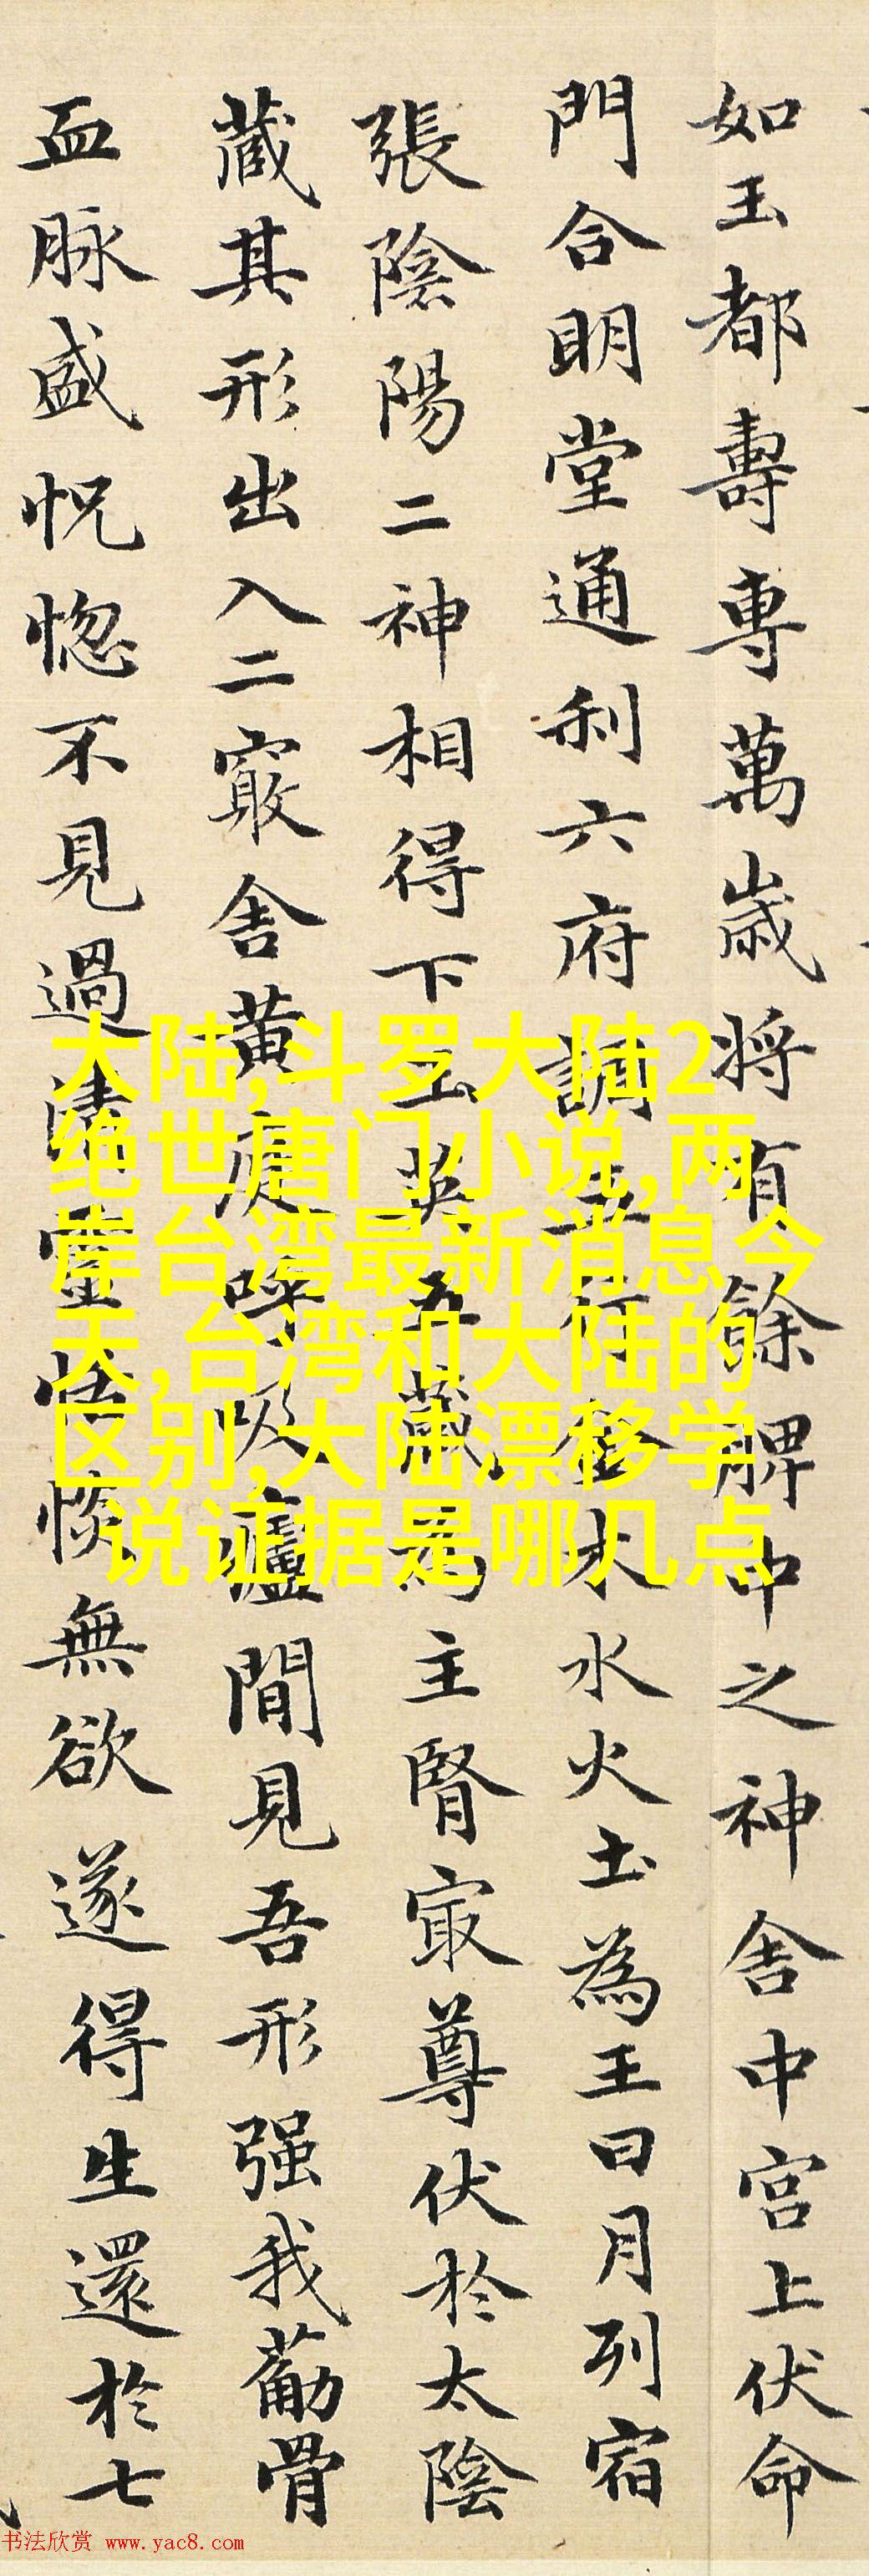 如玉都壽專萬歲將有餘脾中之神舍中宮上伏命
門合明堂通利六府調五行金木水火土為王日月列宿
張陰陽二神相得下玉英五藏為主腎冣尊伏於太陰
藏其形出入二竅舍黃庭呼吸廬間見吾形强我筋骨
血脉盛怳惚不見過清靈恬惔無欲遂得生還於七
大陆,斗罗大陆2
绝世唐门小说,两
岸台湾最新消息今
天,台湾和大陆的
区别,大陆漂移学
说证据是哪几点
书法欣赏 www.yac8.com